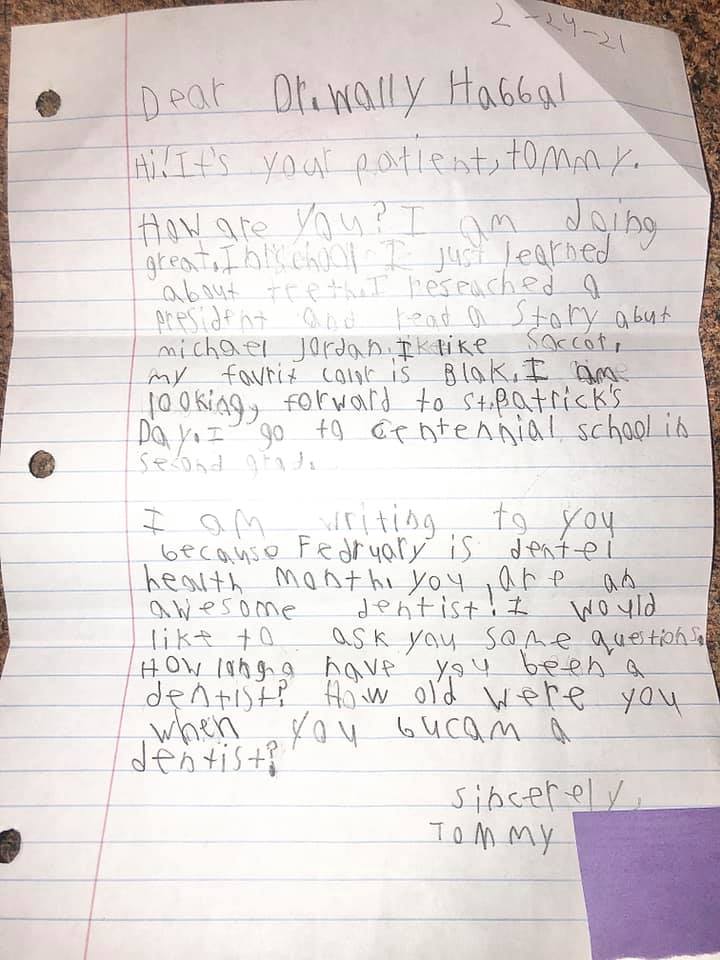 2-24-21
Dear Dr. Wally Habbal
Hi! It's your patient, tommy.
How are you? I am doing
great. In school I just learned
about teeth. I reseached a
president and read a story abut
michael Jordan. I like Saccot,
my favrit color is Blak. I am
looking, forward to st. patrick's
Day. I go to Centennial school in
second grad.
I am writing to you
because Fedruary is dentel
health month. you are an
awesome dentist! I would
like to ask you some questions.
How long have you been a
dentist? How old were you
when you bucam a
dentist?
sincerely,
Tommy